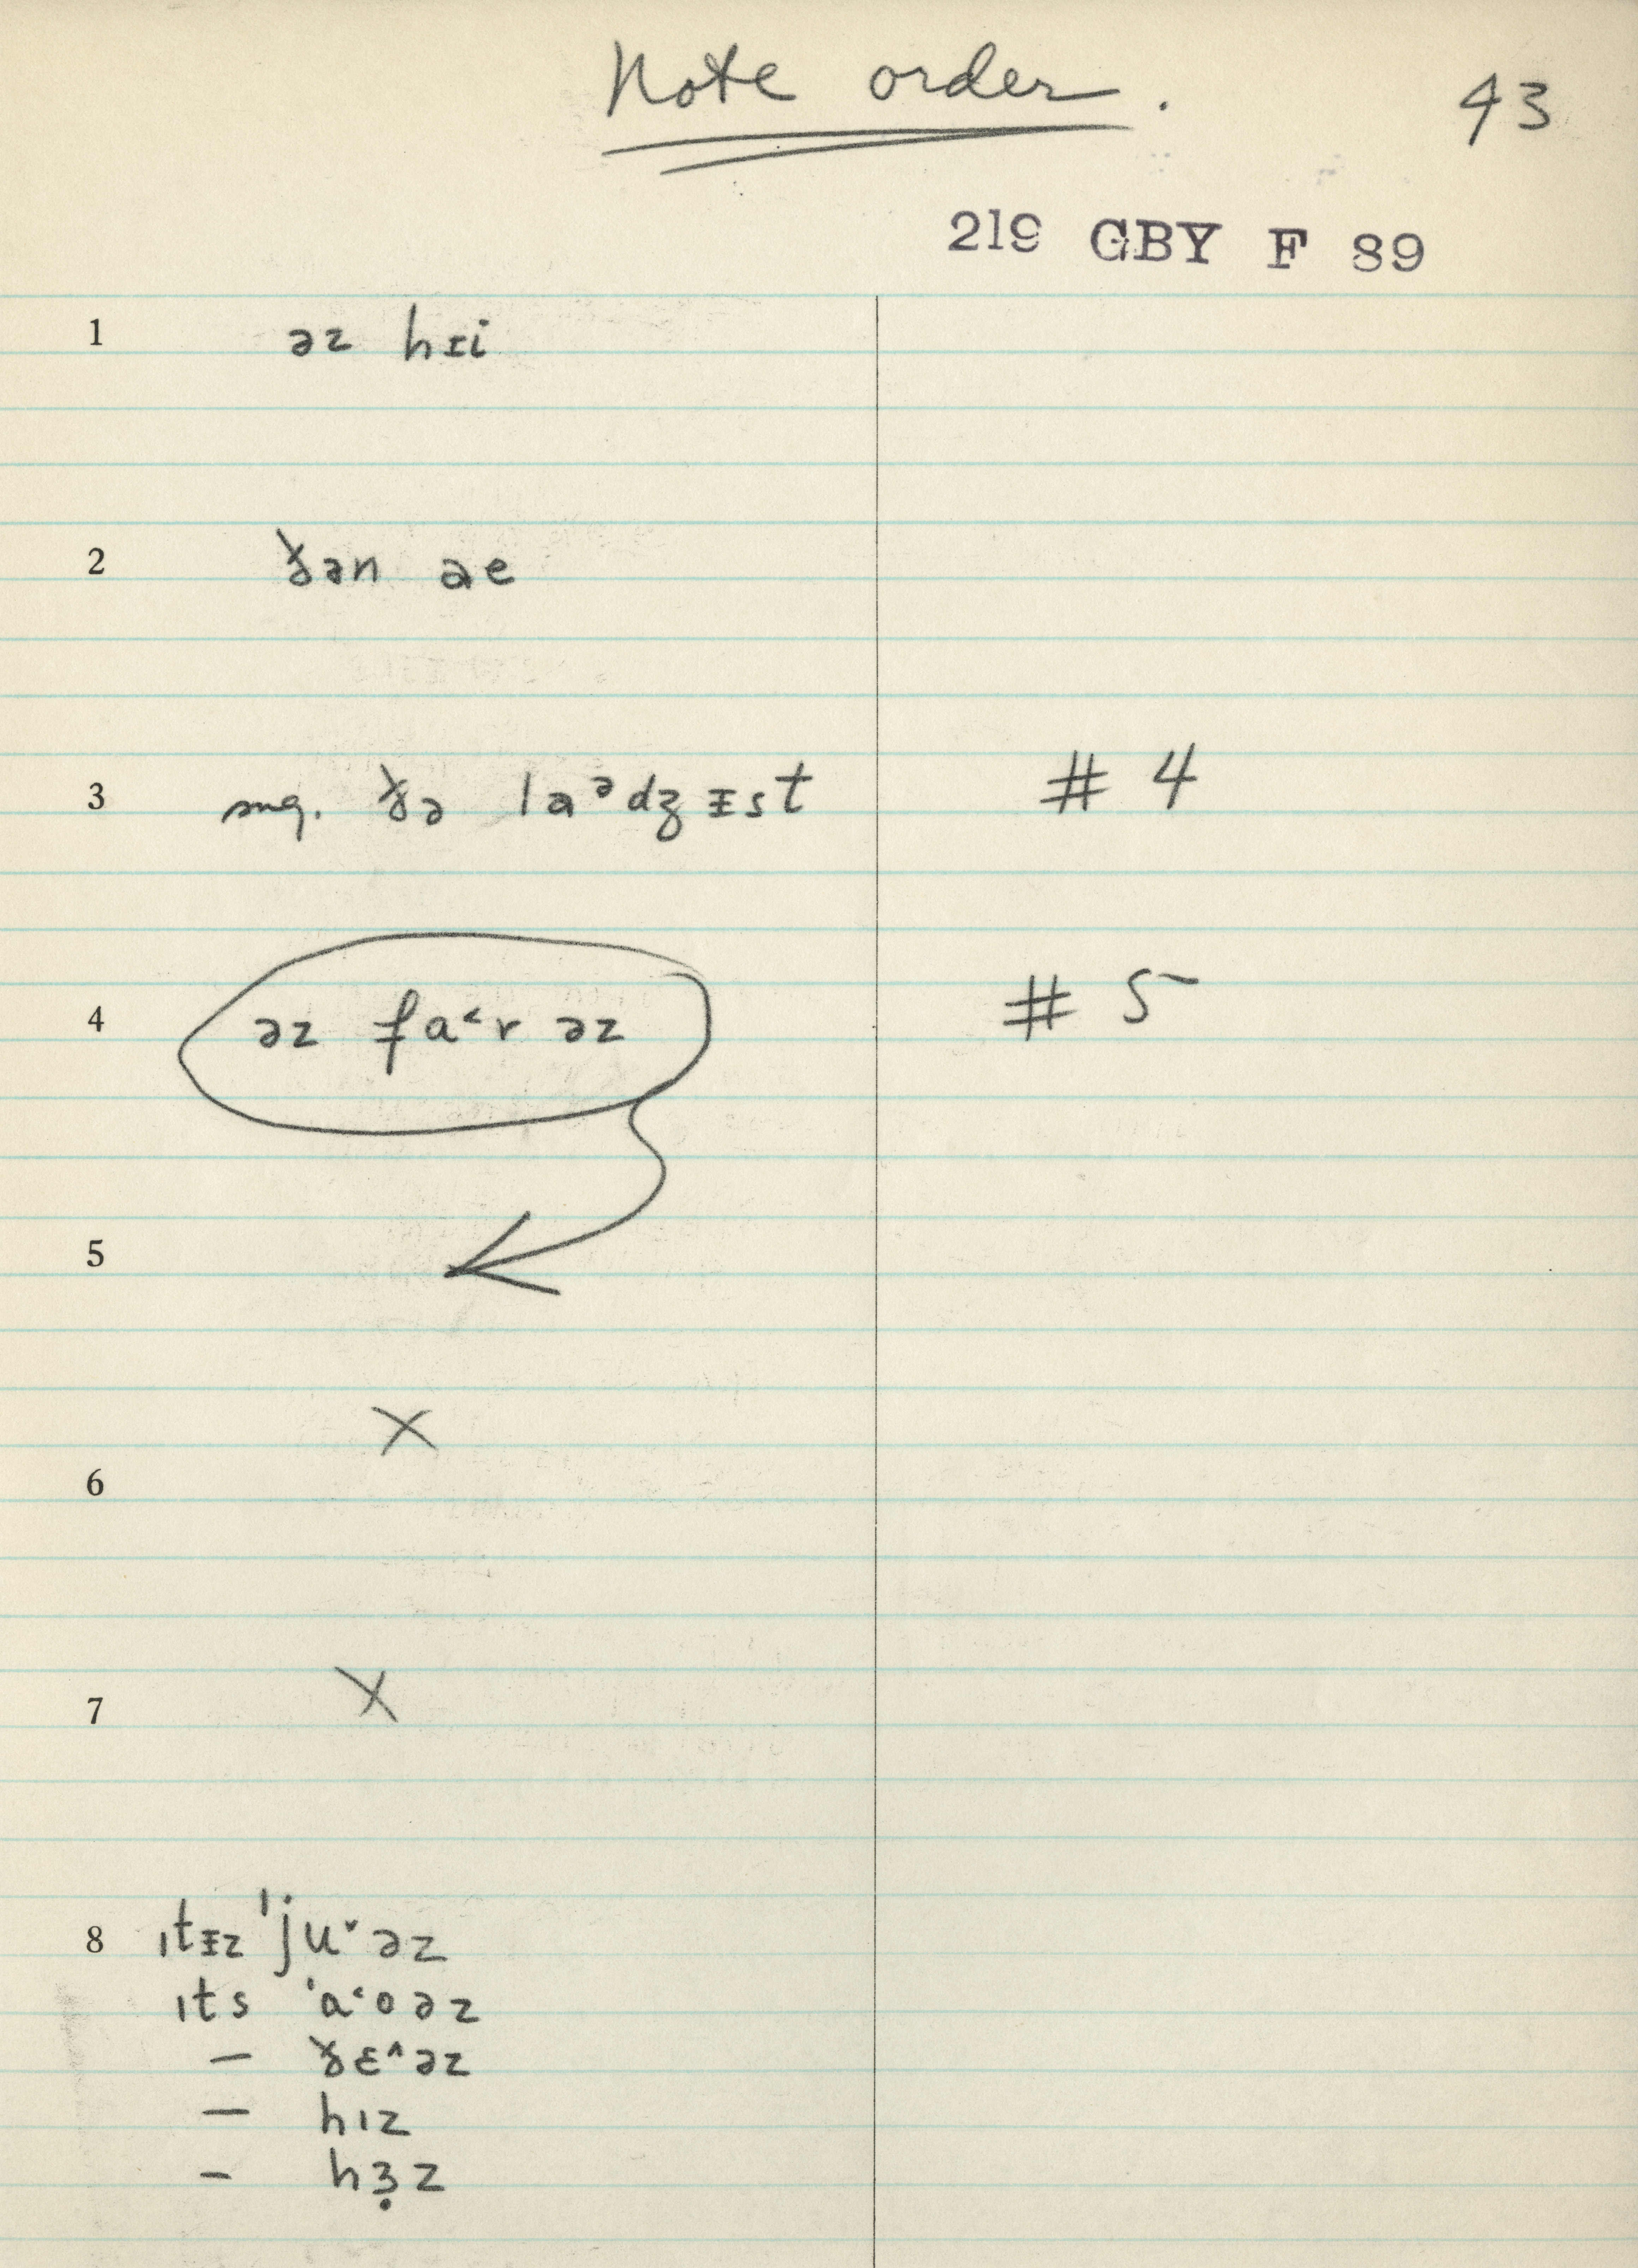 Note order.
43
219 GBY F 89
1 əz hᵻi
2 ð̵ən əe
3 sug. ð̵ə laᵊdʒᵻst # 4
4 əz fa˂r əz # 5
5
6 X
7 X
8 ɪtᵻz ˈju˅əz
ɪts ˈa˂oəz
— ð̵ɛ˄əz
— hɪz
— hɜ̣z